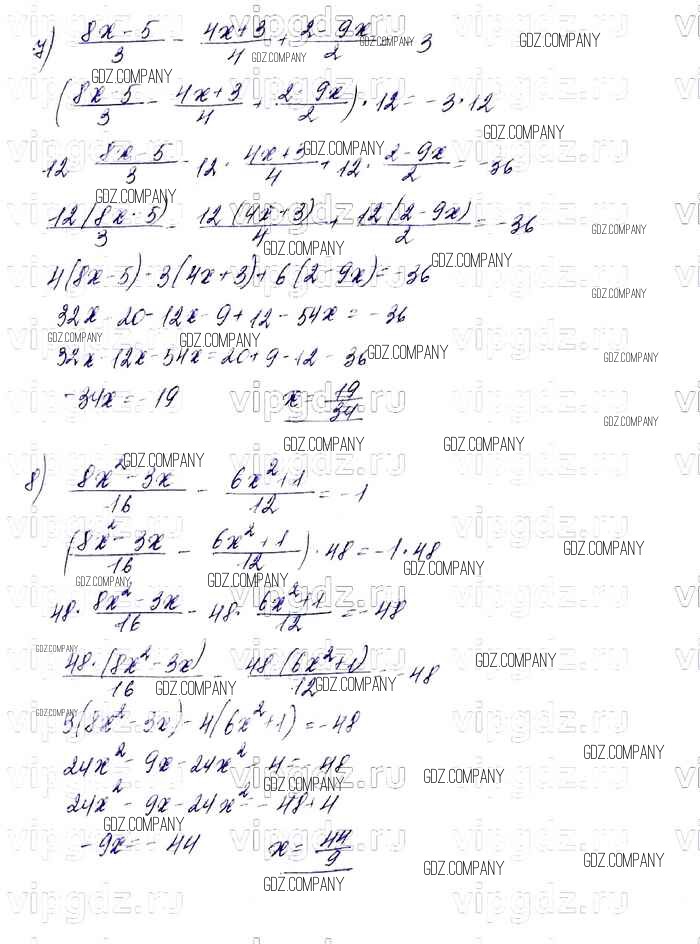 7) (8x-5)/3 - (4x+3)/4 + (2-9x)/2 = -3
((8x-5)/3 - (4x+3)/4 + (2-9x)/2) · 12 = -3 · 12
12 · (8x-5)/3 - 12 · (4x+3)/4 + 12 · (2-9x)/2 = -36
12(8x-5)/3 - 12(4x+3)/4 + 12(2-9x)/2 = -36
4(8x-5) - 3(4x+3) + 6(2-9x) = -36
32x - 20 - 12x - 9 + 12 - 54x = -36
32x - 12x - 54x = 20 + 9 - 12 - 36
-34x = -19 x = 19/34
8) (8x²-3x)/16 - (6x²+1)/12 = -1
((8x²-3x)/16 - (6x²+1)/12) · 48 = -1 · 48
48 · (8x²-3x)/16 - 48 · (6x²+1)/12 = -48
48·(8x²-3x)/16 - 48(6x²+1)/12 = -48
3(8x²-3x) - 4(6x²+1) = -48
24x² - 9x - 24x² - 4 = -48
24x² - 9x - 24x² = -48+4
-9x = -44 x = 44/9
GDZ.COMPANY
vipgdz.ru